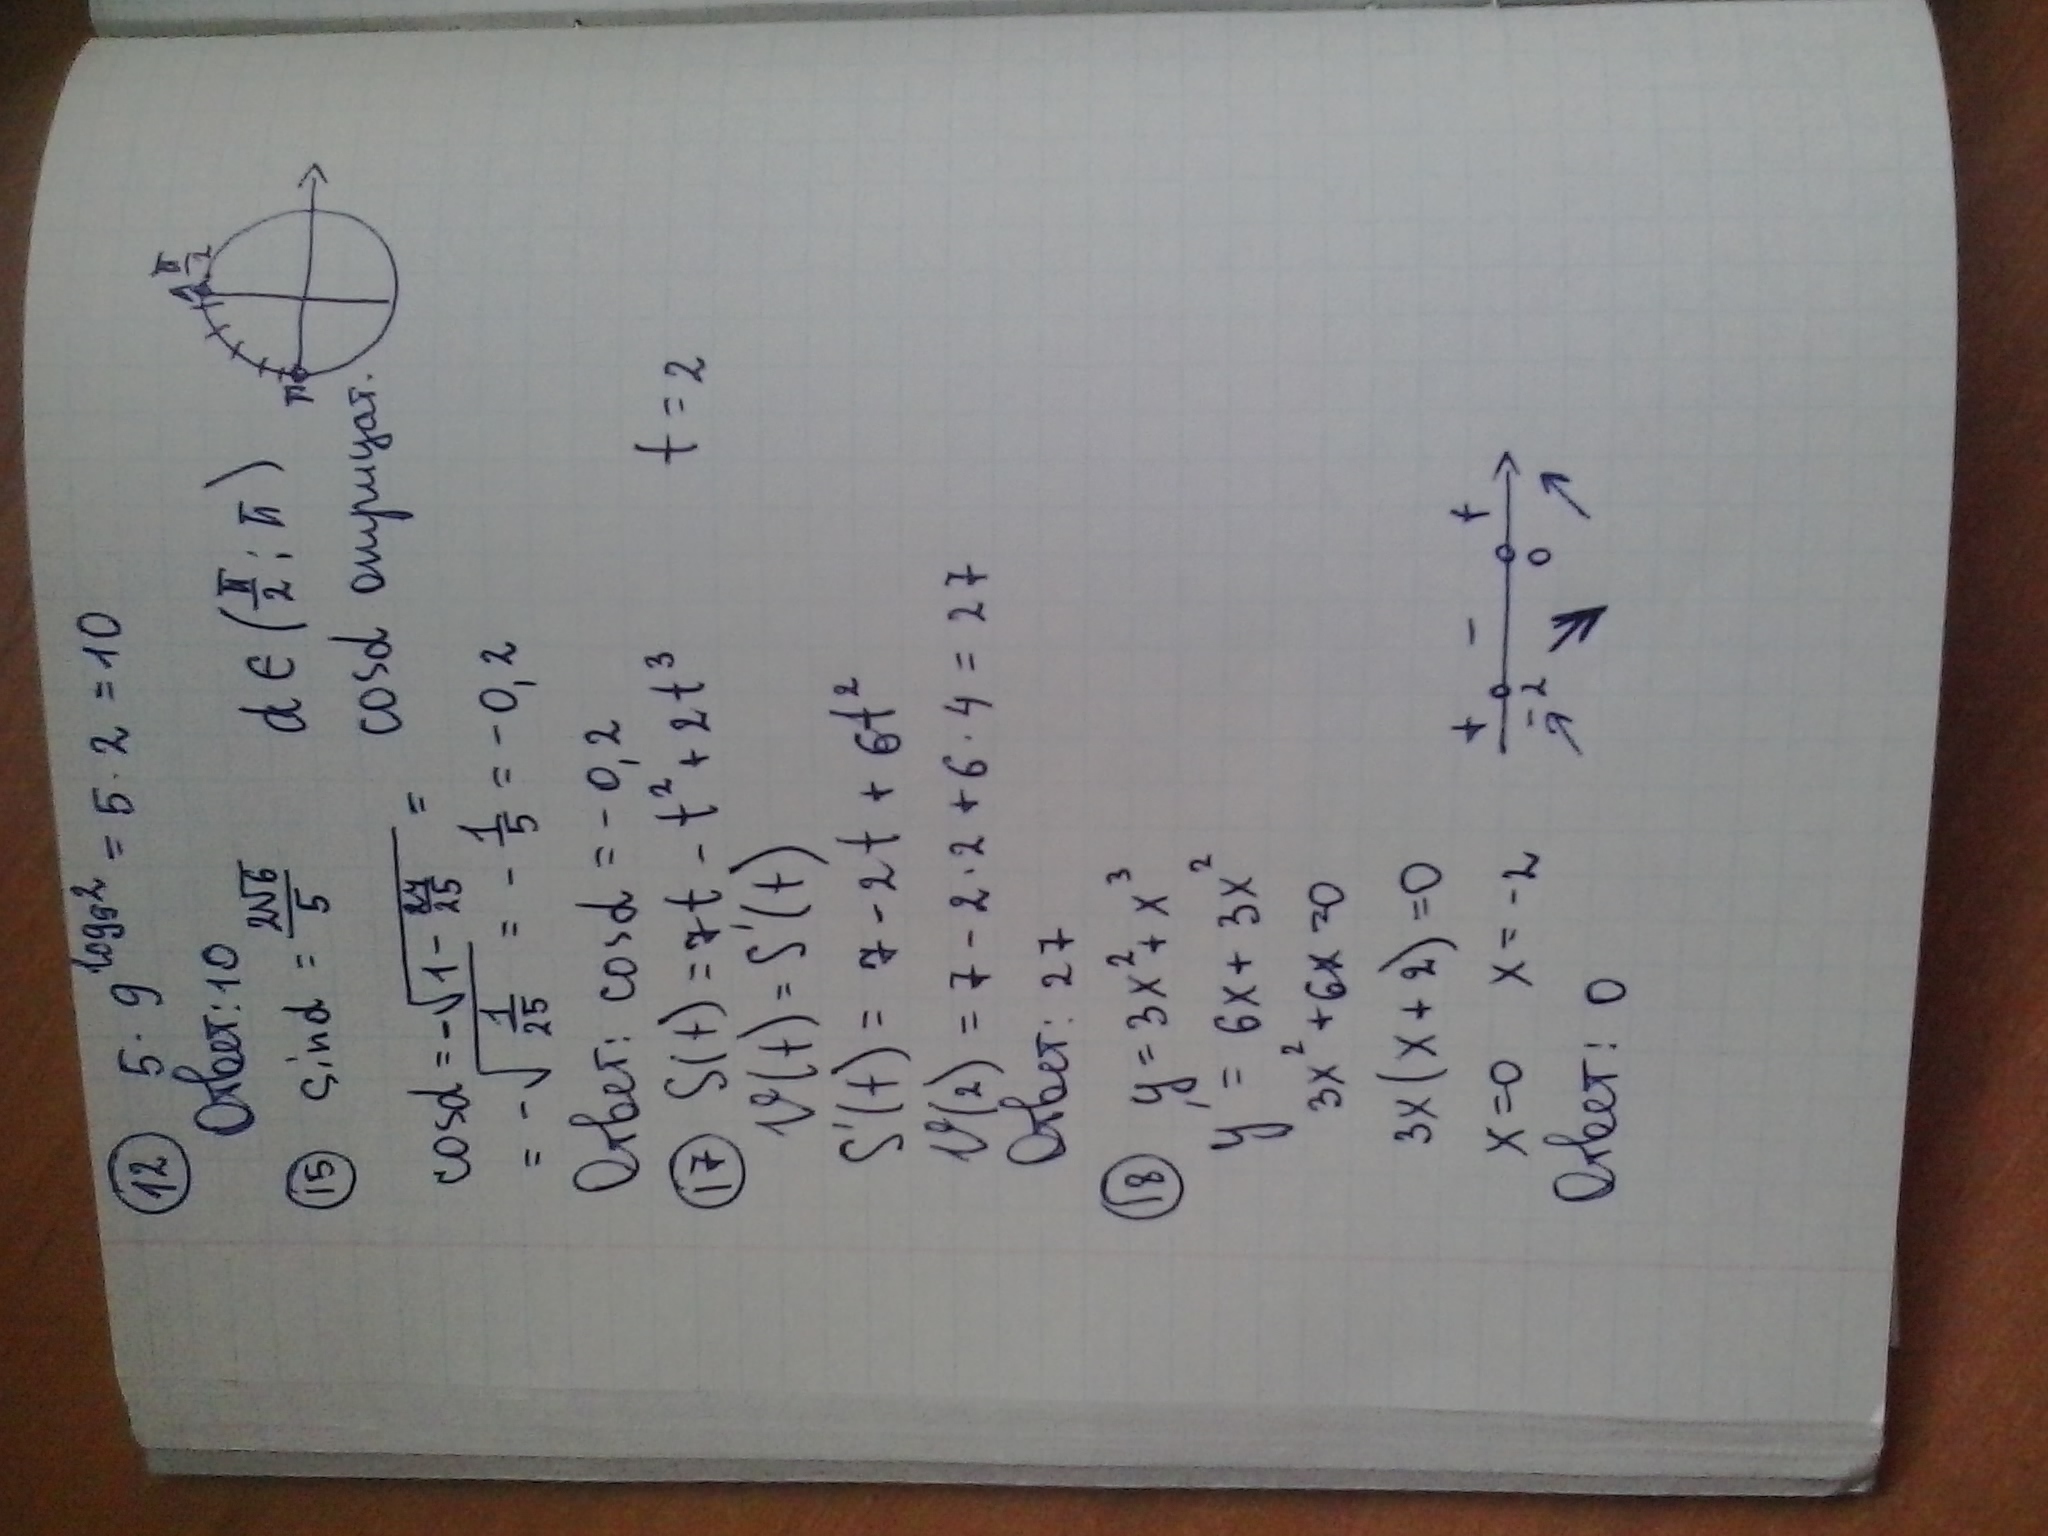 (12) 5 · 9^log₉2 = 5 · 2 = 10
Ответ: 10
(15) sin α = 2√6/5 α ∈ (π/2; π)
π/2
π
cos α = -√(1 - 24/25) = cos α отрицат.
= -√(1/25) = -1/5 = -0,2
Ответ: cos α = -0,2
(17) S(t) = 7t - t² + 2t³ t = 2
V(t) = S'(t)
S'(t) = 7 - 2t + 6t²
V(2) = 7 - 2 · 2 + 6 · 4 = 27
Ответ: 27
(18) y = 3x² + x³
y' = 6x + 3x²
3x² + 6x = 0
3x(x + 2) = 0
x = 0 x = -2
+ - +
-2 0
Ответ: 0